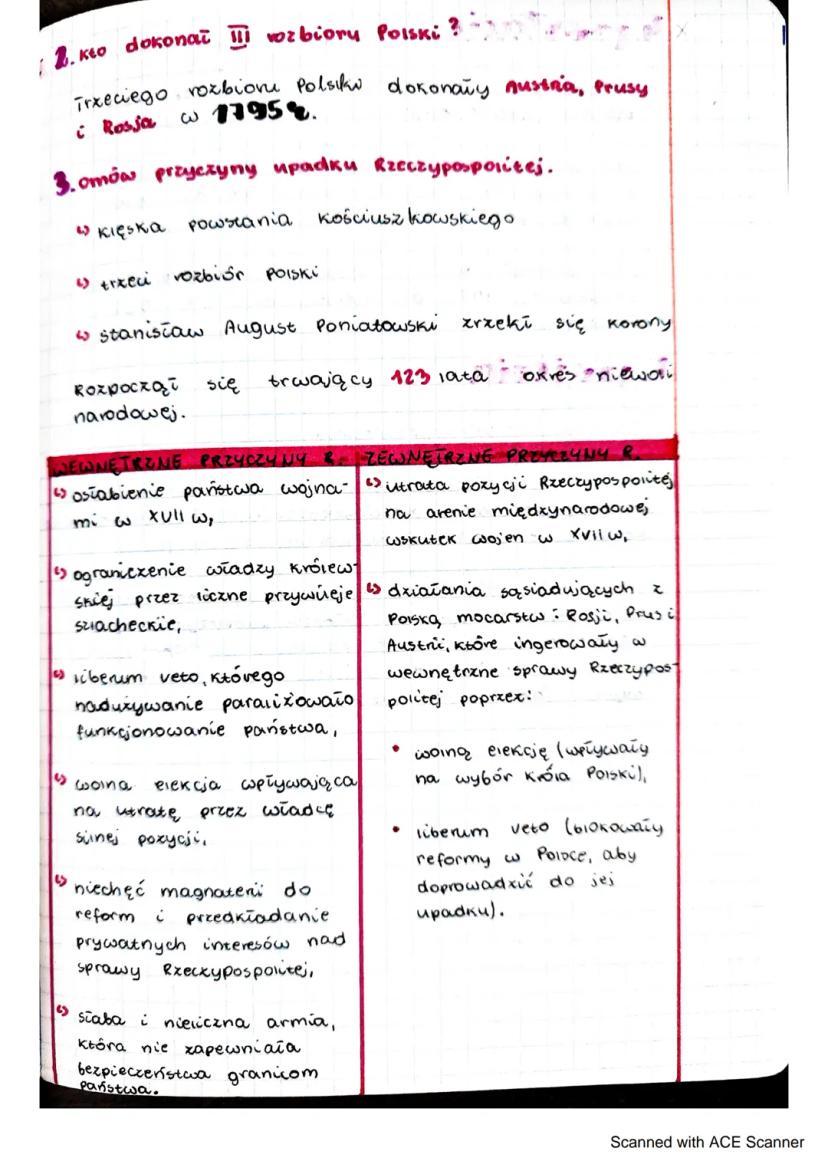 2. kto dokonał III rozbioru Polski?
Trzeciego rozbioru Polski dokonały Austria, Prusy
i Rosja w 1795 r.
3. omów przyczyny upadku Rzeczypospolitej.
↪ klęska powstania kościuszkowskiego
↪ trzeci rozbiór Polski
↪ Stanisław August Poniatowski zrzekł się korony
Rozpoczął się trwający 123 lata okres niewoli
narodowej.
WEWNĘTRZNE PRZYCZYNY R.
↪ osłabienie państwa wojna-
mi w XVII w,
↪ ograniczenie władzy królew-
skiej przez liczne przywileje
szlacheckie,
↪ liberum veto, którego
nadużywanie paraliżowało
funkcjonowanie państwa,
↪ wolna elekcja wpływająca
na utratę przez władcę
silnej pozycji,
↪ niechęć magnaterii do
reform i przedkładanie
prywatnych interesów nad
sprawy Rzeczypospolitej,
↪ słaba i nieliczna armia,
która nie zapewniała
bezpieczeństwa granicom
państwa.
ZEWNĘTRZNE PRZYCZYNY R.
↪ utrata pozycji Rzeczypospolitej
na arenie międzynarodowej
wskutek wojen w XVII w,
↪ działania sąsiadujących z
Polską mocarstw: Rosji, Prus i
Austrii, które ingerowały w
wewnętrzne sprawy Rzeczypos-
politej poprzez:
• wolną elekcję (wpływały
na wybór króla Polski),
• liberum veto (blokowały
reformy w Polsce, aby
doprowadzić do jej
upadku).
Scanned with ACE Scanner